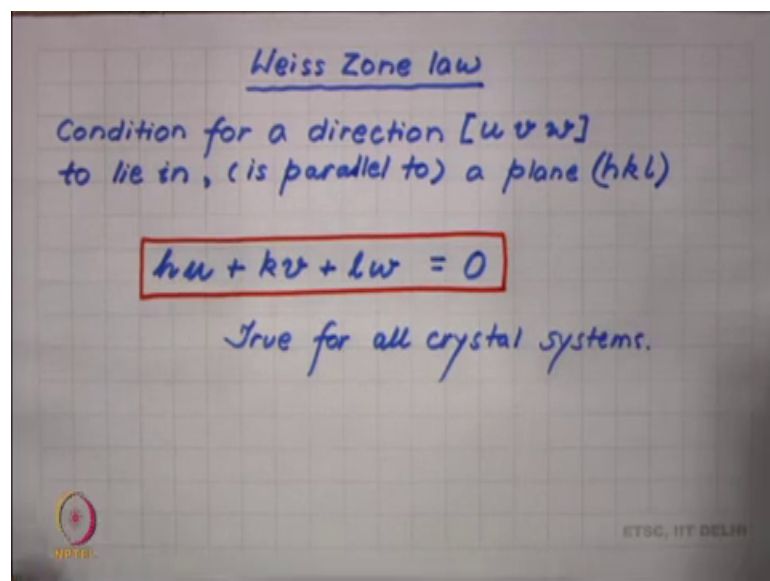 Weiss Zone law
Condition for a direction [u v w]
to lie in, (is parallel to) a plane (hkl)
hu + kv + lw = 0
True for all crystal systems.
NPTEL
ETSC, IIT DELHI